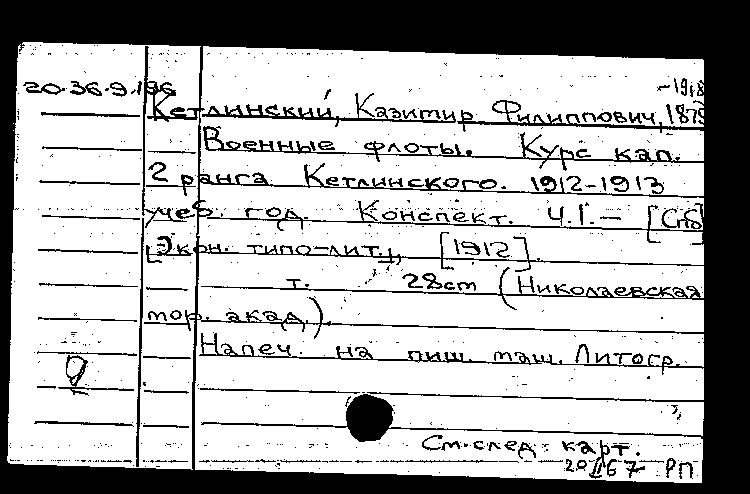 20-36-9.196
-1918
Кетлинский, Казимир Филиппович, 1875
Военные флоты. Курс кап.
2 ранга Кетлинского. 1912-1913
учеб. год. Конспект. Ч.I. - [Спб]
[Экон. типо-лит.], [1912].
т. 28см (Николаевская
мор. акад.).
Напеч. на пиш. маш. Литогр.
См. след. карт.
20 II 67 РП